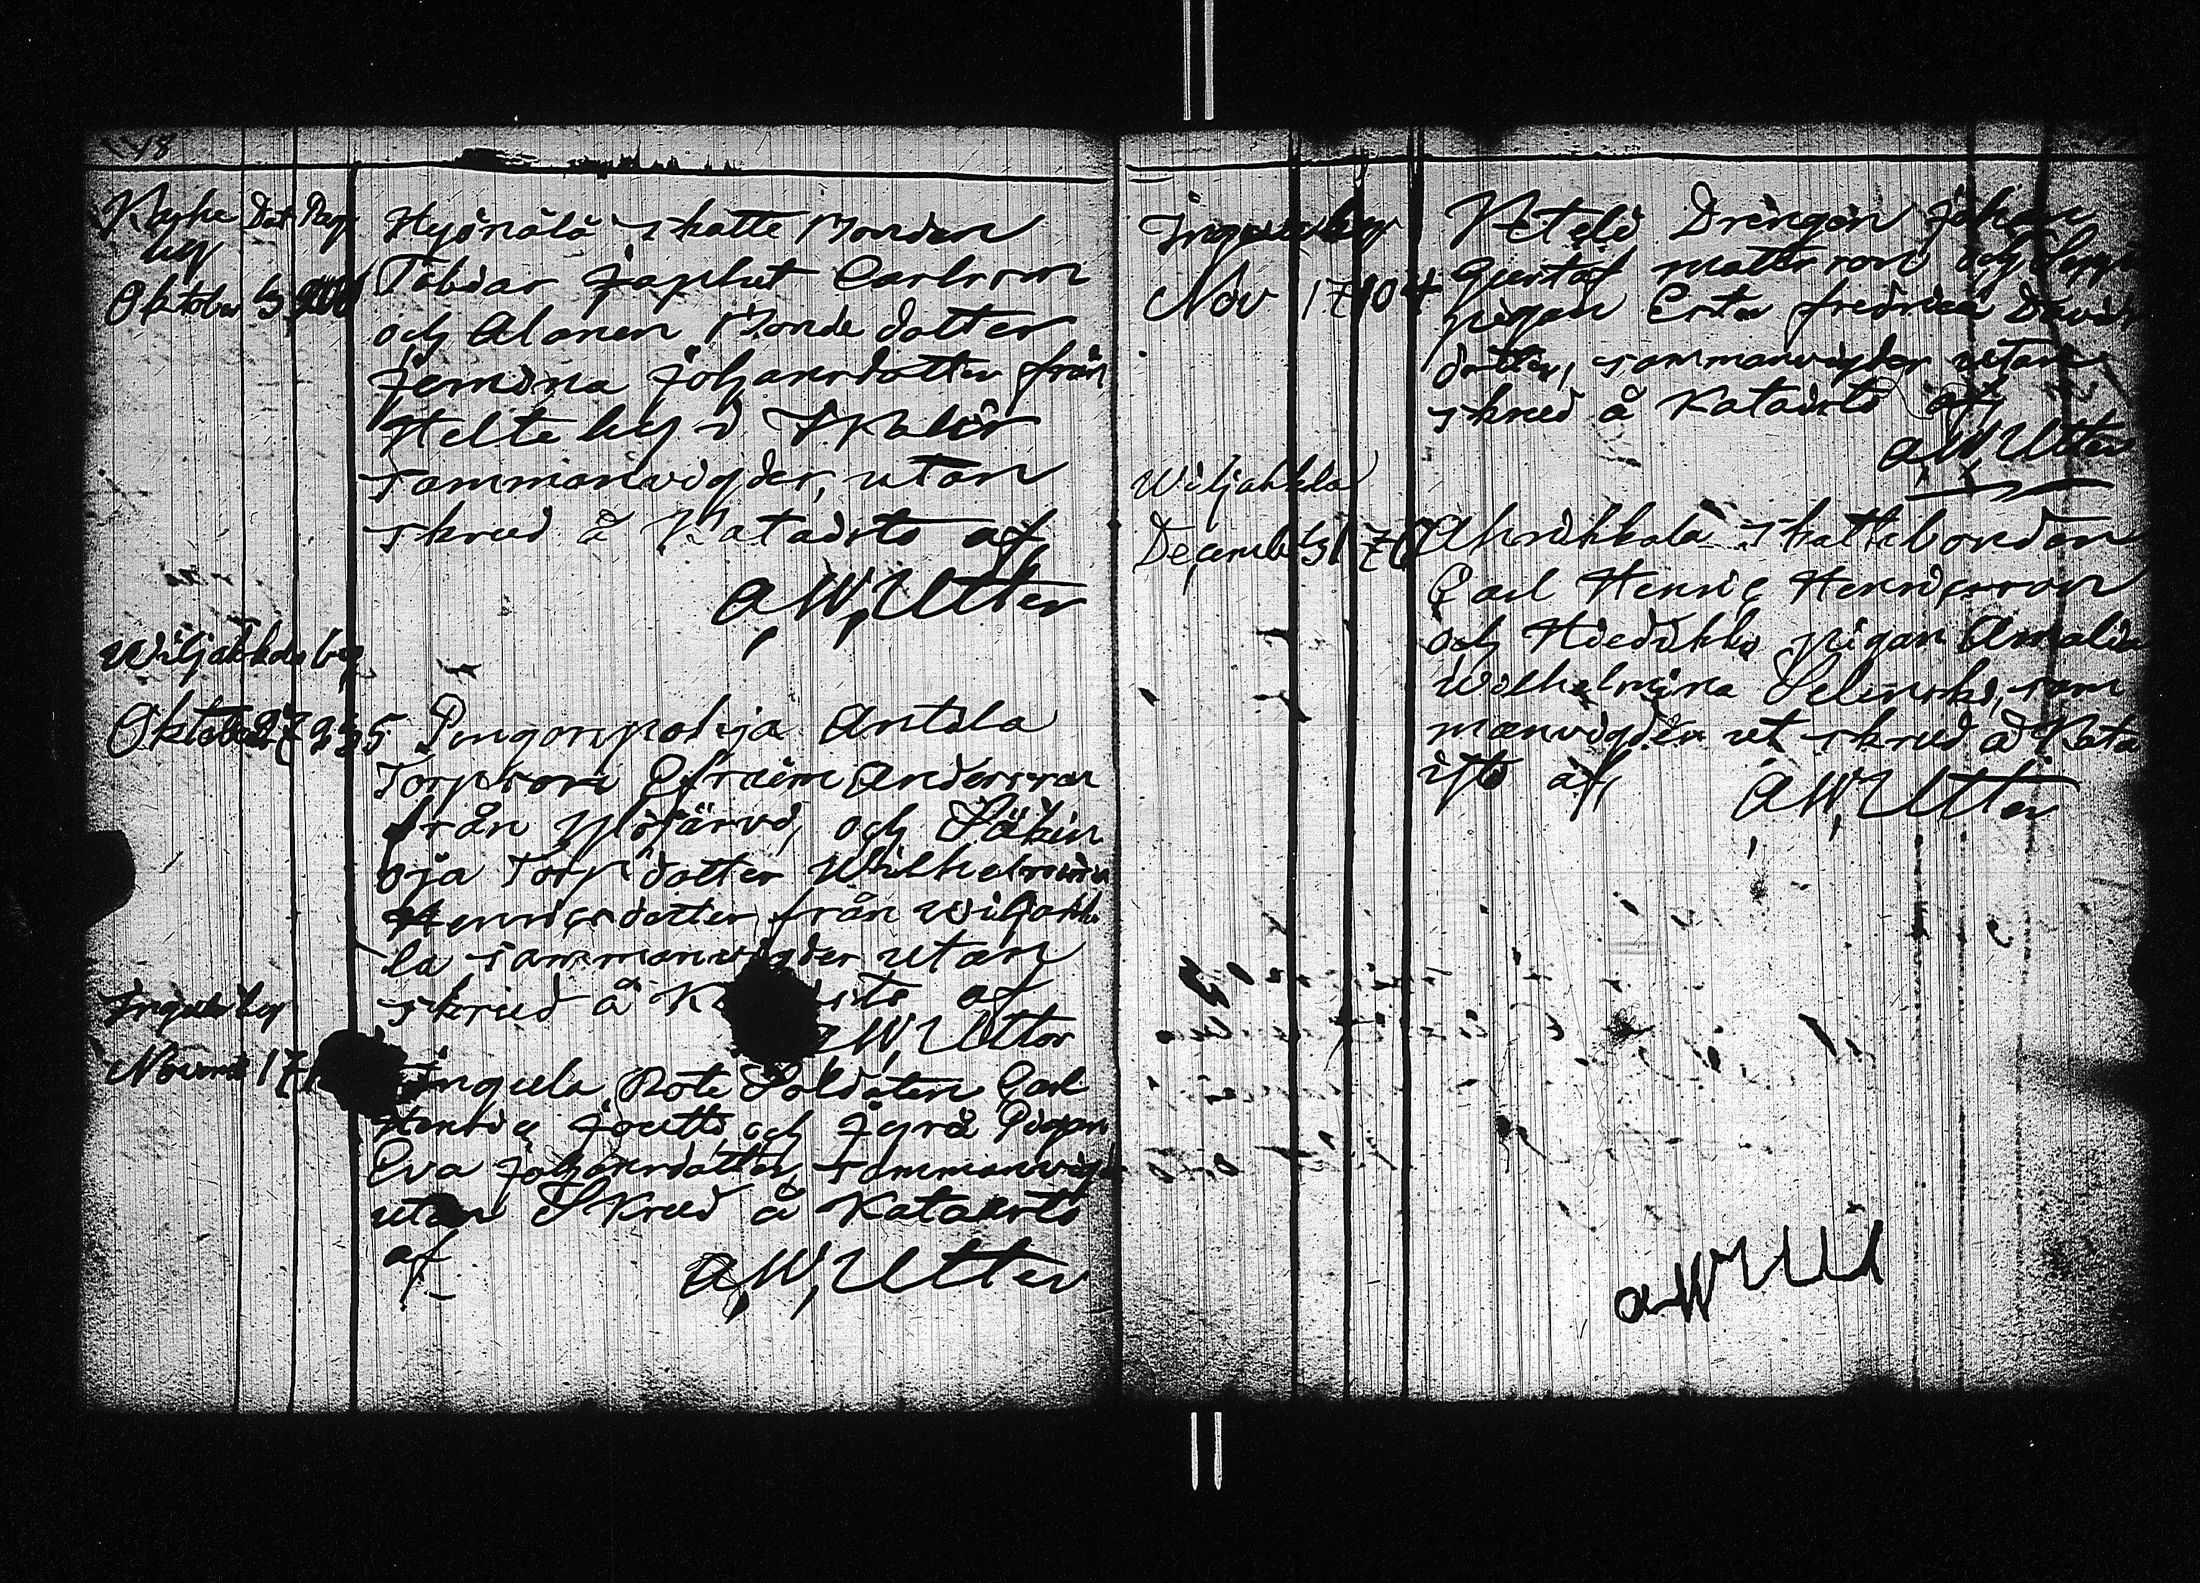 148
Kyrko Dat Pag
by
Oktober 5
Hyönälä skatte Bonden
Tobias Japhet Carlsson
och Alanen Bonde dotter
Jemina Johansdotter från
Helte by i Ikalis
sammanvigder, utan
skrud å Kataisto af
A, W, Utter
Wiljakkala by
Oktober 27 335 Pengonpohja Antila
Torpson Efraim Andersson
från Ylöjärvi, och
oja Torp dotter Wilhelmina
Henricsdotter från Wiljakka
la sammanvigder utan
skrud å af
W, Utter
Ingula by
Novemb 17
Inguls Rote Soldaten Carl
Henric och Jyrä Pigan
Eva Johansdotter, sammanvig
utan Skrud å Kataisto
af
A, W, Utter
Inguls by
Nov 17 104
Drengen Johan
Gustaf Mattsson och
pigan Erta Fredrica Davids
dotter, sammanvigder utan
skrud å Kataisto af
A, W, Utter
Wiljakkala
December 31 76
Ahrikkala skattebonden
Carl Henric Henricsson
och Hiedikko pigan Amalia
Wilhelmina Selenski, sam
manvigder ut skrud å Kata
isto af,
A, W, Utter